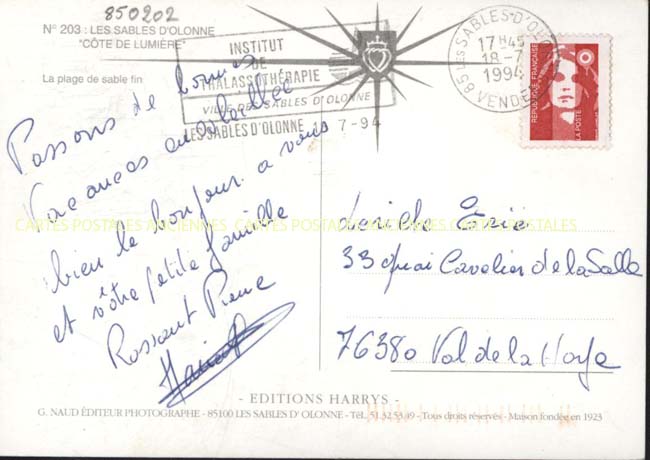 850202
N° 203 : LES SABLES D'OLONNE
"CÔTE DE LUMIÈRE"
La plage de sable fin
INSTITUT
DE
THALASSOTHÉRAPIE
VILLE DES SABLES D'OLONNE
LES SABLES D'OLONNE 18-7-94
85 LES SABLES-D'OLO
17 H 45
18-7
1994
VENDEE
REPUBLIQUE FRANÇAISE
LA POSTE
Passons de bonnes
Vacances
bien le bonjour a vous
et vôtre petite famille
Rossant Pierre
CARTES POSTALES ANCIENNES CARTES POSTALES ANCIENNES CARTES POSTALES
33 quai Cavelier de la Salle
76380 Val de la Haye
- EDITIONS HARRYS -
G. NAUD ÉDITEUR PHOTOGRAPHE - 85100 LES SABLES D'OLONNE - TÉL. 51.32.53.49 - Tous droits réservés - Maison fondée en 1923